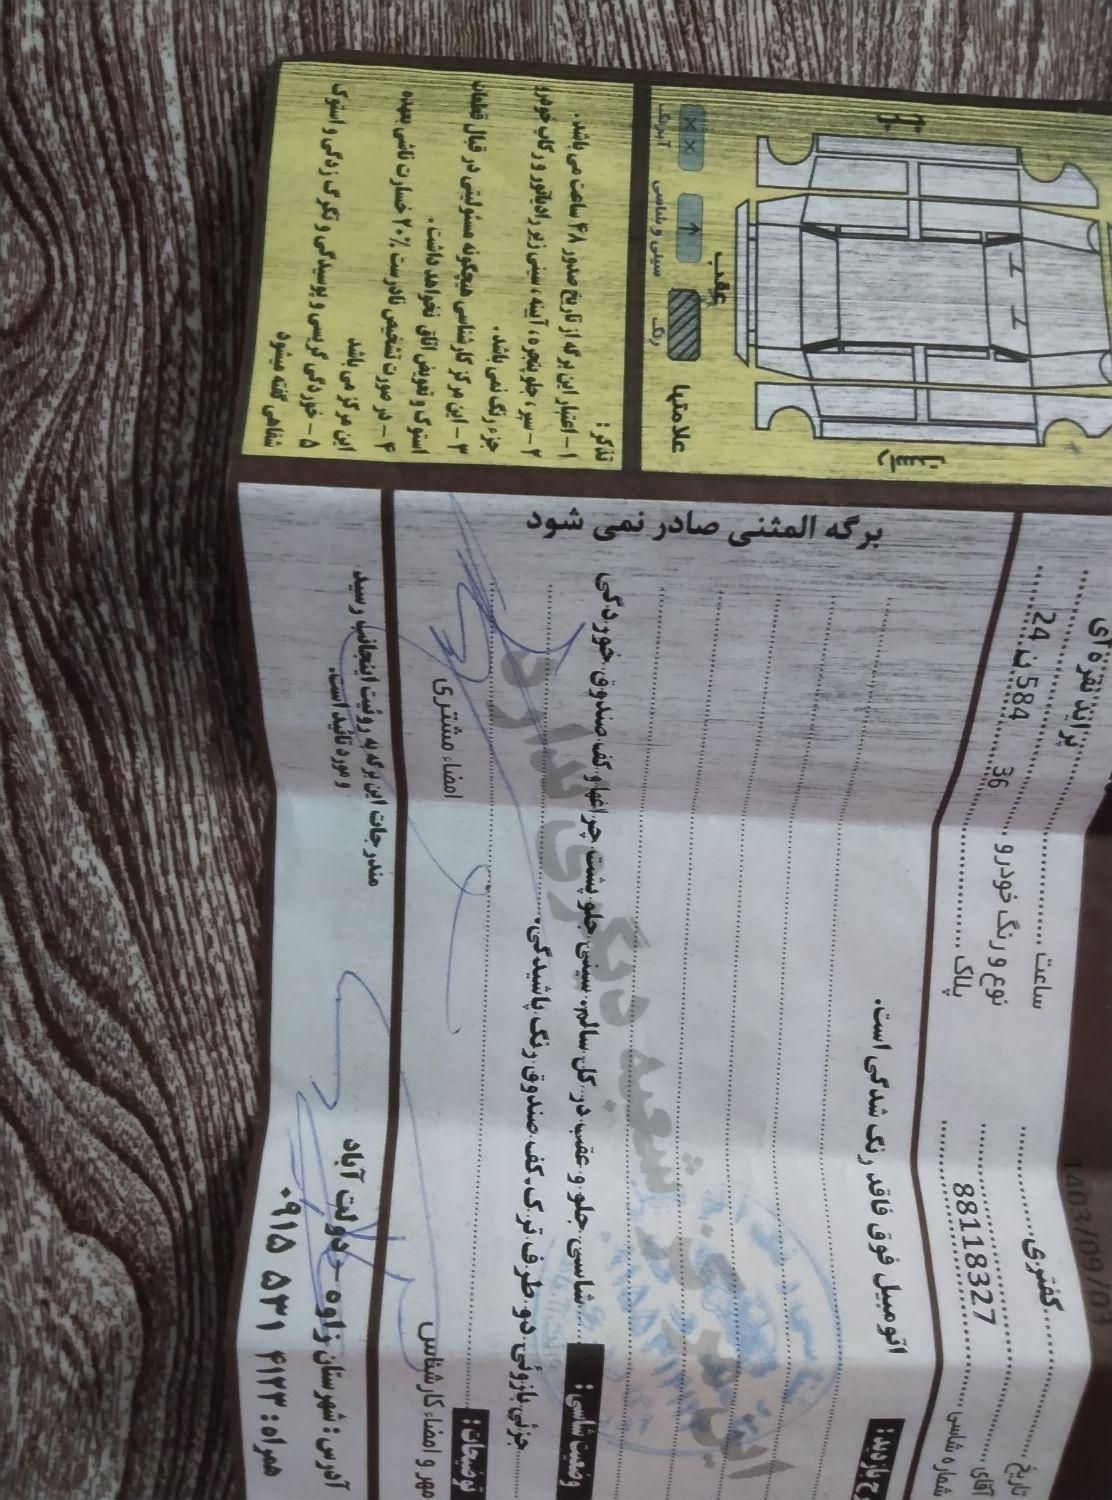 تاریخ
1403/09/03
ساعت
آقای
کفتری
نوع و رنگ خودرو
پراید نقره ای
شماره شاسی
88118327
پلاک
36 584 ب 24
ح بازدید:
اتومبیل فوق فاقد رنگ شدگی است.
وضعیت شاسی:
شاسی جلو و عقب در کل سالم. سینی جلو پشت چراغها و کف صندوق خوردگی
جزئی بازوئی دو طرف ترک کف صندوق رنگ پاشیدگی.
توضیحات:
این مرکز شعبه دیگری ندارد
مهر و امضاء کارشناس
امضاء مشتری
مندرجات این برگه به روئیت اینجانب رسید
و مورد تائید است.
آدرس: شهرستان زاوه - دولت آباد
همراه: ۴۱۲۳ ۵۳۱ ۰۹۱۵
برگه المثنی صادر نمی شود
راست
چپ
عقب
علامتها
رنگ
سینی و شاسی
آبرنگ
تذکر:
۱- اعتبار این برگه از تاریخ صدور ۴۸ ساعت می باشد.
۲- سپر، جلو پنجره، آیینه، سینی زیر رادیاتور و رکاب خودرو
جزء رنگ نمی باشد.
۳- این مرکز کارشناسی هیچگونه مسئولیتی در قبال قطعات
استوک و تعویض اتاق نخواهد داشت.
۴- در صورت تشخیص نادرست ۲۰٪ خسارت ناشی بعهده
این مرکز می باشد
۵- خوردگی گریسی و پوسیدگی و تگرگ زدگی و استوک
شفاهی گفته میشود